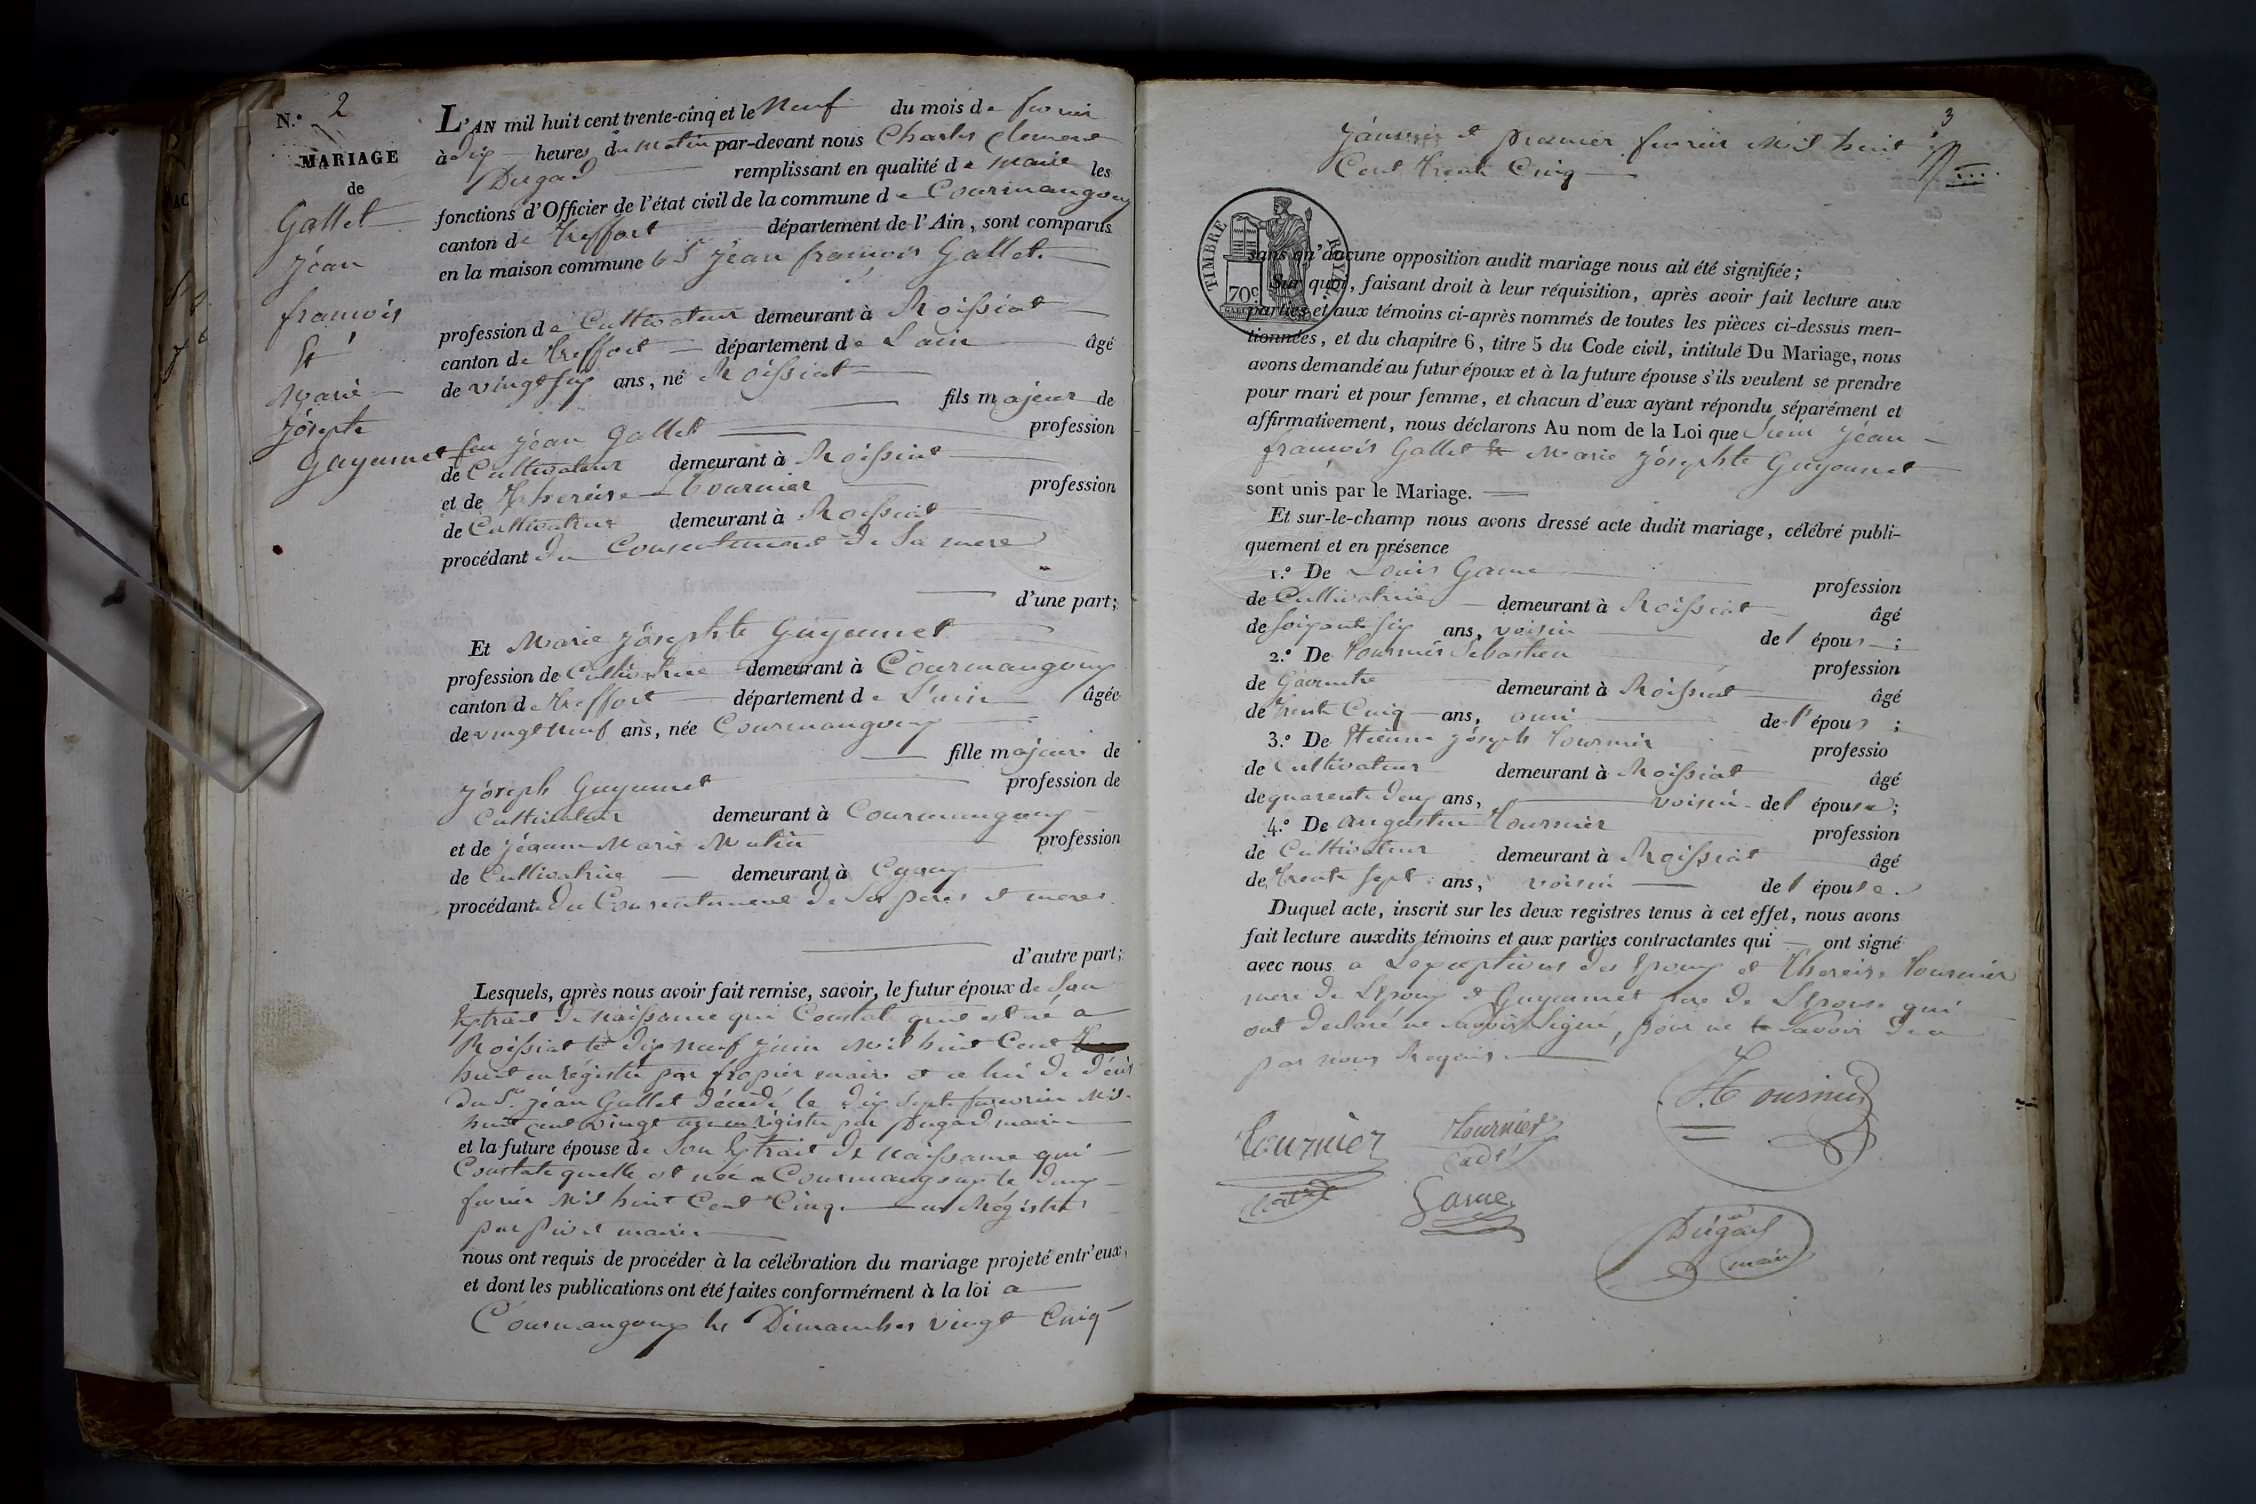 N.° 2
MARIAGE
de
Gallet
Jean
francois
Et
Marie
Joséphte
Guyennet
L'AN mil huit cent trente-cinq et le Neuf du mois de fevrier
à dix heures du matin par-devant nous Charles Clement
Dugad remplissant en qualité de maire les
fonctions d'Officier de l'état civil de la commune de Courmangoux
canton de treffort département de l'Ain, sont comparus
en la maison commune Jean francois Gallet.
profession de Cultivateur demeurant à Roissiat
canton de treffort département de Lain âgé
de vingt six ans, né Roissiat
fils majeur de
feu Jean Gallet profession
de Cultivateur demeurant à Roissiat
et de thereise tournier profession
de Cultivatrice demeurant à Roissiat
procédant du Consentement de Sa mere
d'une part;
Et Marie Joséphte Guyennet
profession de Cultivatrice demeurant à Courmangoux
canton de treffort département de Lain âgée
de vingt neuf ans, née Courmangoux
fille majeure de
Joseph Guyennet profession de
Cultivateur demeurant à Courmangoux
et de Jéanne Marie Matin profession
de Cultivatrice demeurant à
procédant du Consentement de Ses peres et meres
d'autre part;
Lesquels, après nous avoir fait remise, savoir, le futur époux de Son
Extrait de naissance qui Constate quil est né a
Roissiat le dix neuf juin mil huit Cent
huit enregistré par fropier maire et a lui de déces
du Sr. Jéan Gallet décedé le dix Sept fevrier mil
huit cent vingt enregistré par Dugad maire
et la future épouse de Son Extrait de naissance qui
Constate quelle est née a Courmangoux le deux
fevrier mil huit Cent Cinq enregistré
par maire
nous ont requis de procéder à la célébration du mariage projeté entr'eux,
et dont les publications ont été faites conformément à la loi a
Courmangoux les Dimanches vingt Cinq
3
Janvier et premier fevrier mil huit
Cent trente Cinq
TIMBRE ROYAL
70c.
sans qu'aucune opposition audit mariage nous ait été signifiée;
Sur quoi, faisant droit à leur réquisition, après avoir fait lecture aux
parties et aux témoins ci-après nommés de toutes les pièces ci-dessus men-
tionnées, et du chapitre 6, titre 5 du Code civil, intitulé Du Mariage, nous
avons demandé au futur époux et à la future épouse s'ils veulent se prendre
pour mari et pour femme, et chacun d'eux ayant répondu séparément et
affirmativement, nous déclarons Au nom de la Loi que Jean
francois Gallet Marie Joséphte Guyennet
sont unis par le Mariage.
Et sur-le-champ nous avons dressé acte dudit mariage, célébré publi-
quement et en présence
1.° De Louis Game profession
de Cultivateur demeurant à Roissiat âgé
de soixante six ans, voisin de l'époux;
2.° De tournier Sebastien profession
de demeurant à Roissiat âgé
de trente Cinq ans, ami de l'époux;
3.° De Etienne Joseph tournier professio
de Cultivateur demeurant à Roissiat âgé
de quarente deux ans, voisin de l'épouse;
4.° De augustin tournier profession
de Cultivateur demeurant à Roissiat âgé
de trente sept ans, voisin de l'épouse.
Duquel acte, inscrit sur les deux registres tenus à cet effet, nous avons
fait lecture auxdits témoins et aux parties contractantes qui ont signé
avec nous a Lexceptions des Epoux et thereise tournier
mere de Lepoux et Guyennet pere de Lepouse qui
ont declaré ne savoir Signé, pour ne le savoir de ce
par nous Requis.
tournier
tournier
cadet
Tournier
Game
Dugad
maire